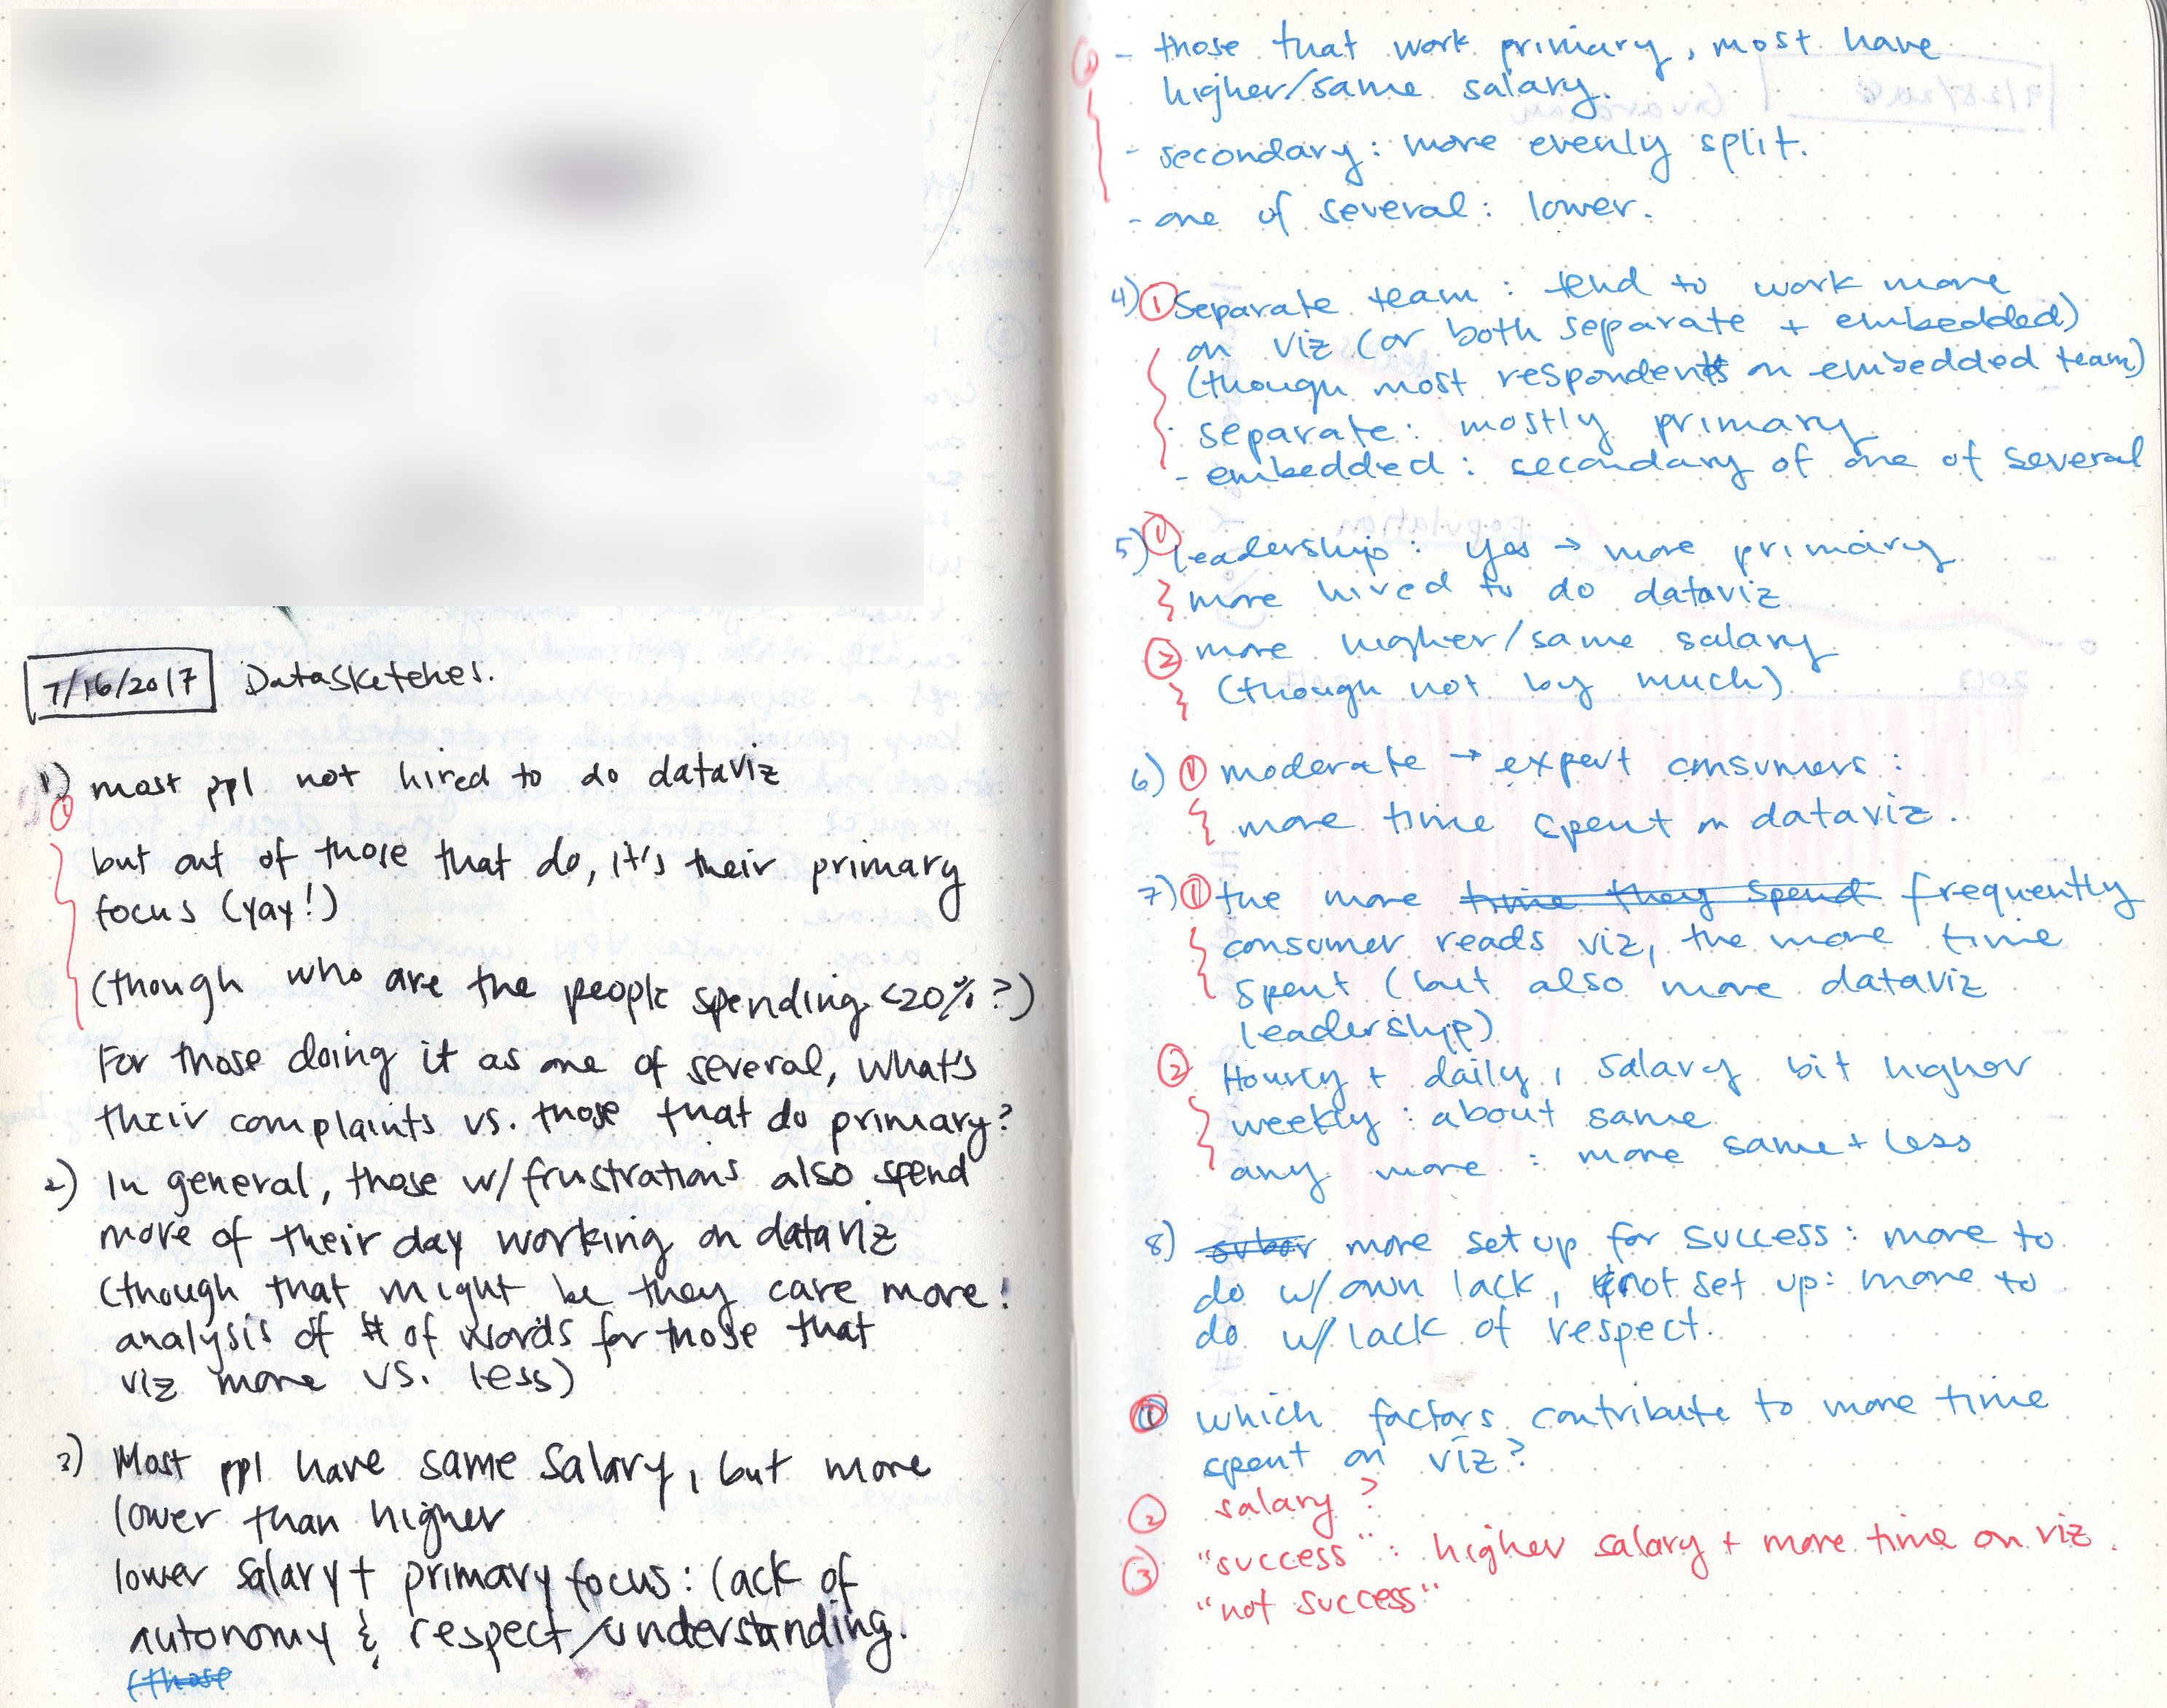 7/16/2017 Datasketches.
1) most ppl not hired to do dataviz
①
but out of those that do, it's their primary
focus (yay!)
(though who are the people spending <20%?)
For those doing it as one of several, what's
their complaints vs. those that do primary?
2) In general, those w/ frustrations also spend
more of their day working on dataviz
(though that might be they care more!
analysis of # of words for those that
viz more vs. less)
3) Most ppl have same salary, but more
lower than higher
lower salary + primary focus: lack of
autonomy & respect/understanding.
(those
- those that work primary, most have
higher/same salary.
- secondary: more evenly split.
- one of several: lower.
4) ① Separate team: tend to work more
on viz (or both separate + embedded)
(though most respondents on embedded team)
- separate: mostly primary
- embedded: secondary of one of several
5) ① leadership: yes → more primary
more hired to do dataviz
② more higher/same salary
(though not by much)
6) ① moderate → expert consumers:
more time spent on dataviz.
7) ① the more time they spend frequently
consumer reads viz, the more time
spent (but also more dataviz
leadership)
② Hourly + daily, salary bit higher
weekly: about same
any more: more same + less
8) more set up for success: more to
do w/ own lack, not set up: more to
do w/ lack of respect.
① which factors contribute to more time
spent on viz?
② salary?
③ "success": higher salary + more time on viz.
"not success"